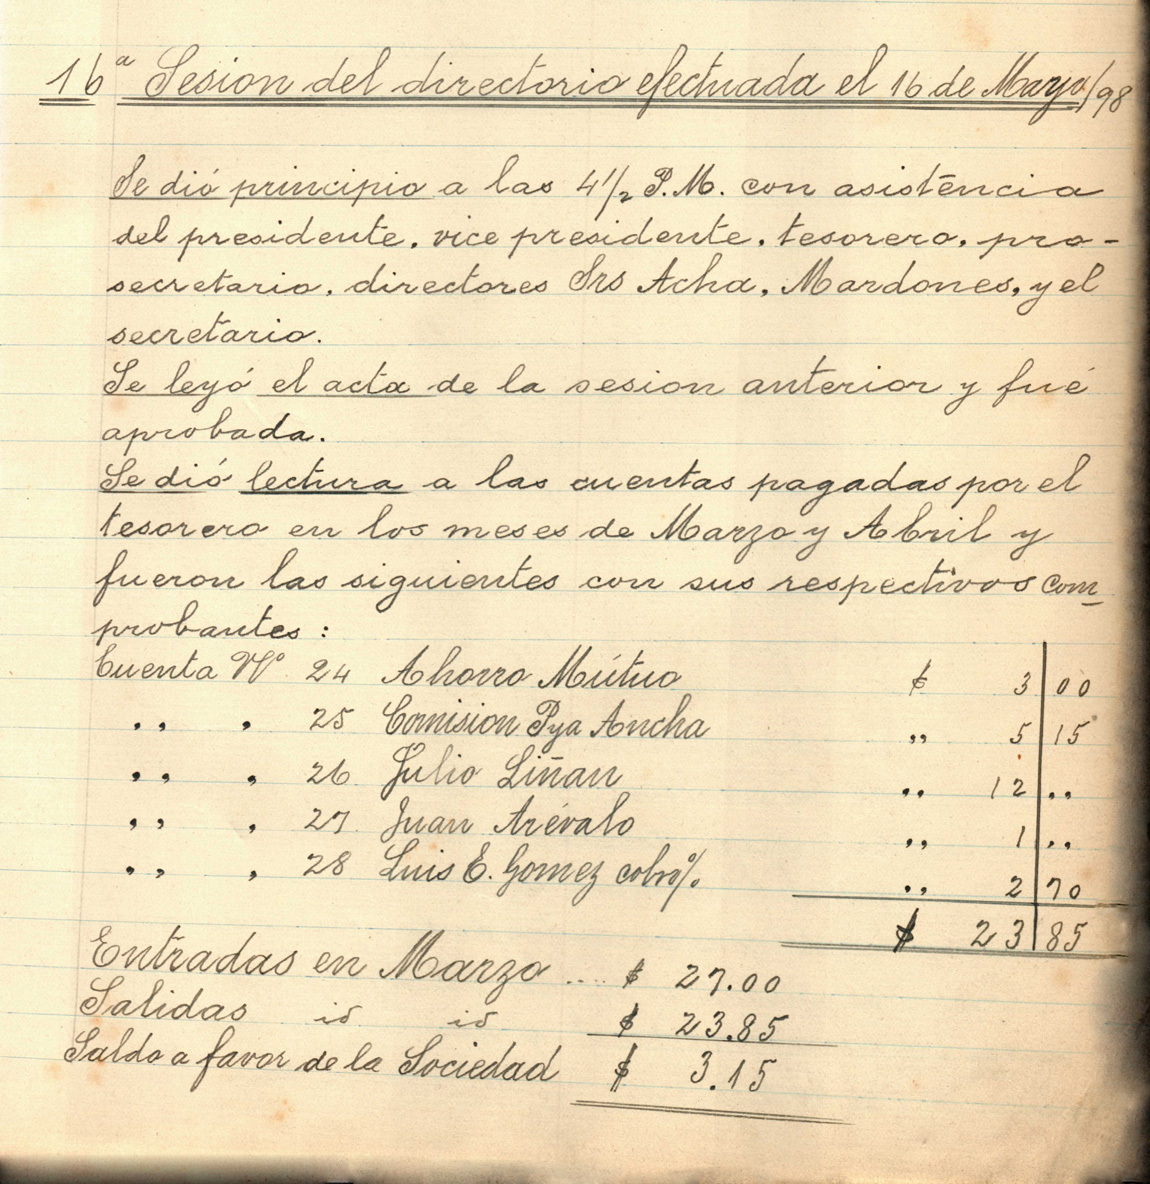 16ª Sesion del directorio efectuada el 16 de Mayo/98
Se dió principio a las 4 1/2 P.M. con asistencia
del presidente, vice presidente, tesorero, pro-
secretario, directores Srs Acha, Mardones, y el
secretario.
Se leyó el acta de la sesion anterior y fué
aprobada.
Se dió lectura a las cuentas pagadas por el
tesorero en los meses de Marzo y Abril y
fueron las siguientes con sus respectivos com-
probantes:
Cuenta Nº 24 Ahorro Mútuo $ 3 00
,, , 25 Comision Pya Ancha ,, 5 15
,, , 26 Julio Liñan ,, 12 ,,
,, , 27 Juan Arévalo ,, 1 ,,
,, , 28 Luis E. Gomez cobro % ,, 2 70
$ 23 85
Entradas en Marzo .... $ 27.00
Salidas id id $ 23.85
Saldo a favor de la Sociedad $ 3.15